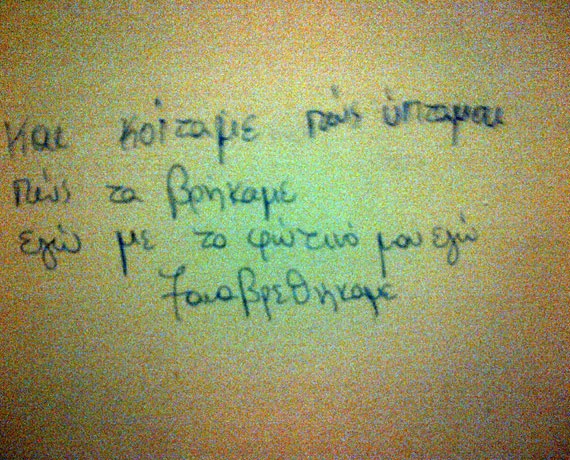 Και κοίταμε πώς ύπταμαι
πώς τα βρήκαμε
εγώ με το φωτεινό μου εγώ
ξαναβρεθήκαμε